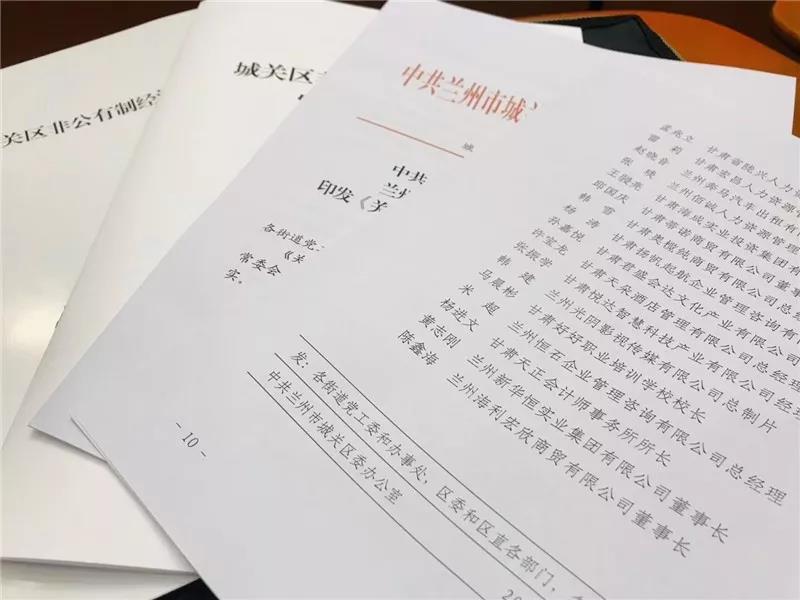 关区非公有制经
城关区
中共兰州市城
城
中共
兰州
印发《关
各街道党
《关
常委会
实。
孟兆文 甘肃省陇兴人力资
雷莉 甘肃宏昌人力资源
赵晓音 兰州奔马汽车出租有
张轶 兰州信诚人力资源管理
王骏亮 甘肃海成实业投资集团有
邱国庆 甘肃蒂诺商贸有限公司董事
韩雪 甘肃奥榄纯商贸有限公司总经
杨涛 甘肃扬帆起航企业管理咨询有
孙嘉悦 甘肃君盛会达文化产业有限公司
许宝龙 甘肃天朵酒店管理有限公司
张振学 甘肃悦达智慧科技产业有限公司
韩建 兰州光阴影视传媒有限公司总制片
马晨彬 甘肃好好职业培训学校校长
米超 兰州恒石企业管理咨询有限公司总经理
杨进文 甘肃天正会计师事务所所长
黄志刚 兰州新华恒实业集团有限公司董事长
陈鑫海 兰州海利宏欣商贸有限公司董事长
发：各街道党工委和办事处，区委和区直各部门，
中共兰州市城关区委办公室
20
- 10 -